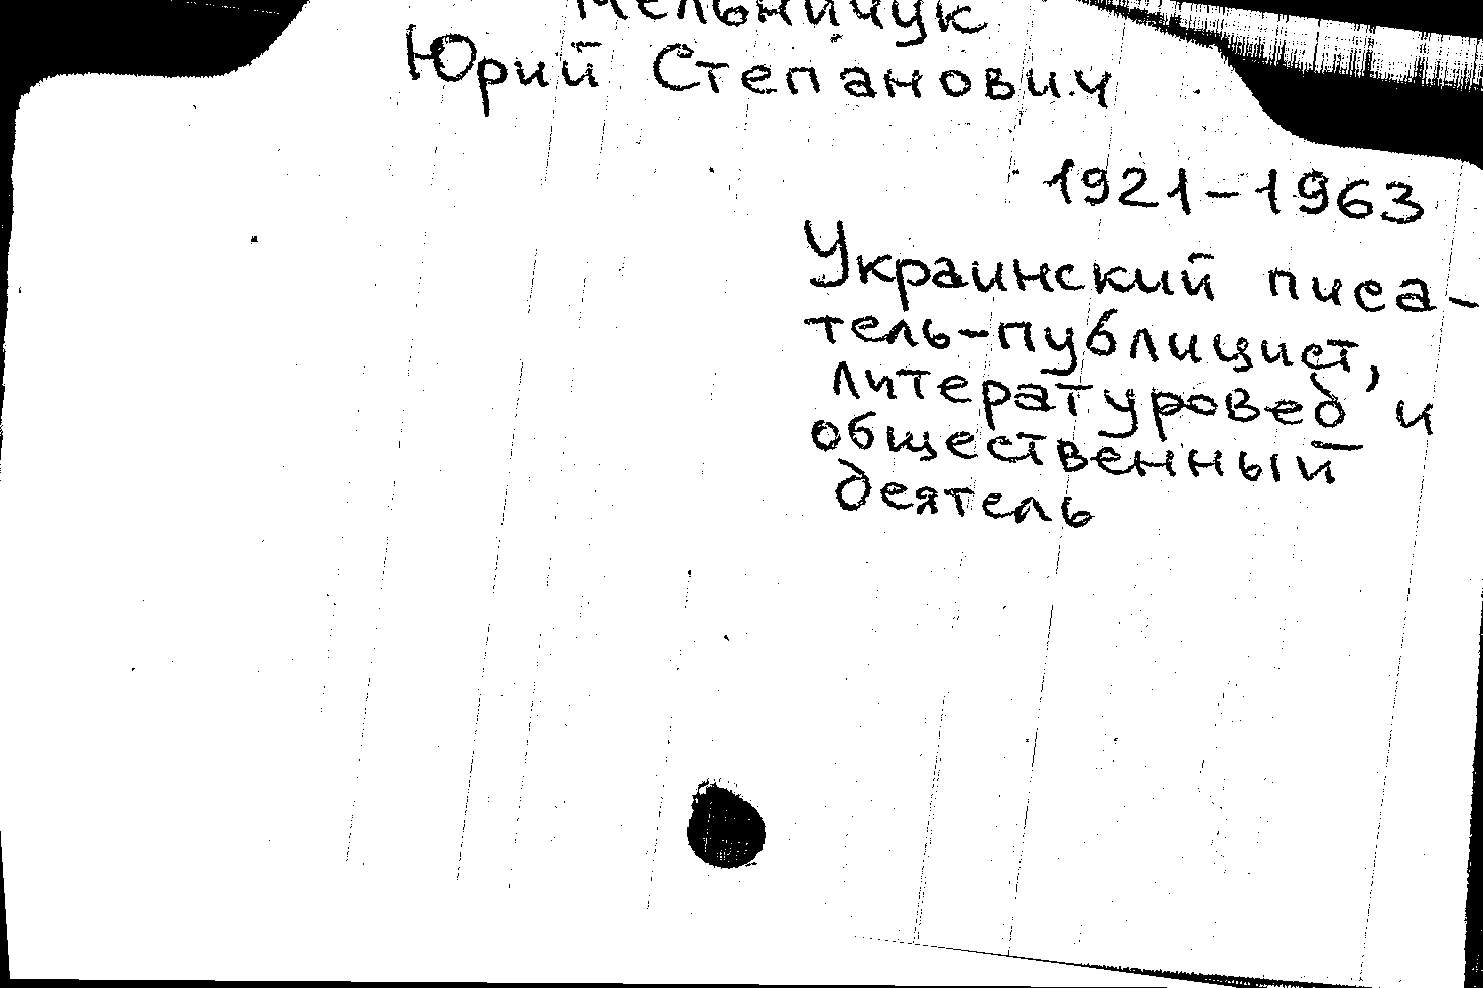 Мельничук
Юрий Степанович
1921-1963
Украинский писа-
тель-публицист,
литературовед и
общественный
деятель